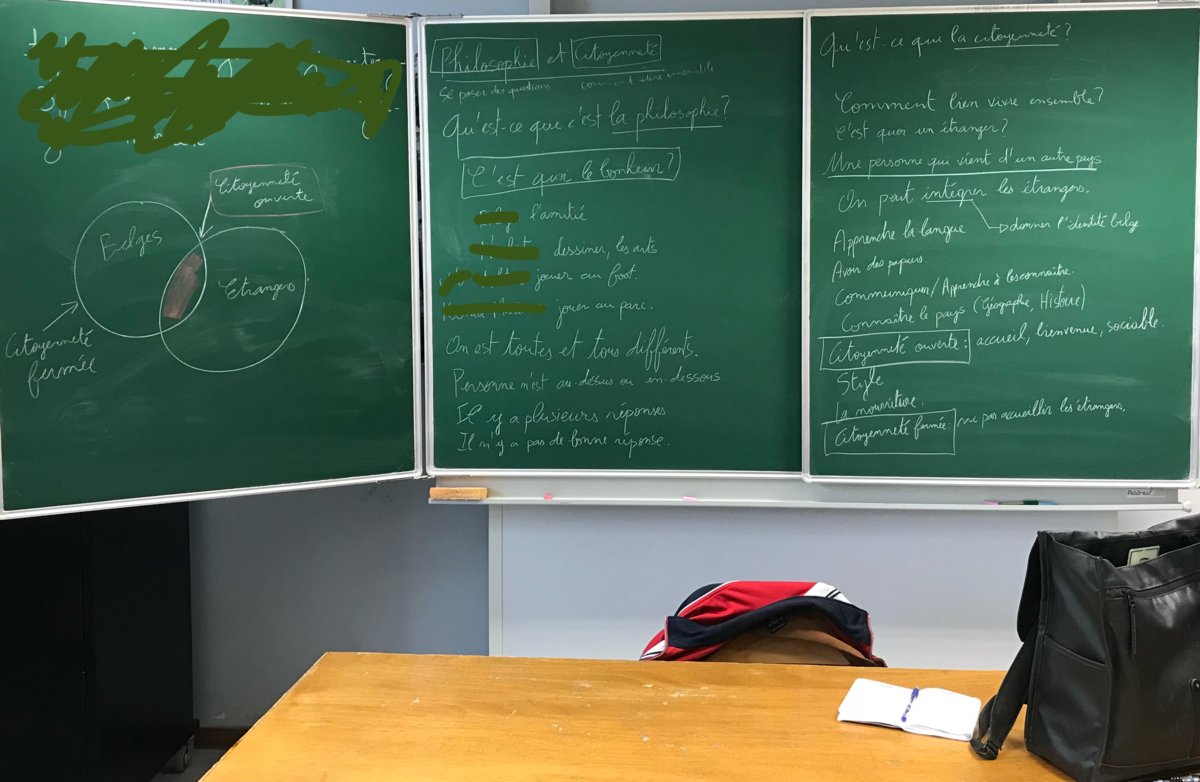 Citoyenneté
ouverte
Belges
Etrangers
Citoyenneté
fermée
Philosophie et Citoyenneté
Se poser des questions Comment vivre ensemble
Qu'est-ce que c'est la philosophie?
C'est quoi le bonheur?
l'amitié
dessiner, les arts
jouer au foot.
jouer au parc.
On est toutes et tous différents.
Personne n'est au-dessus ou en-dessous.
Il y a plusieurs réponses.
Il n'y a pas de bonne réponse.
Qu'est-ce que la citoyenneté?
Comment bien vivre ensemble?
C'est quoi un étranger?
Une personne qui vient d'un autre pays
On peut intégrer les étrangers.
donner l'identité belge
Apprendre la langue
Avoir des papiers.
Communiquer/Apprendre à les connaître.
Connaître le pays (Géographie, Histoire)
Citoyenneté ouverte: accueil, bienvenue, sociable.
Style
La nourriture.
Citoyenneté fermée: ne pas accueillir les étrangers.